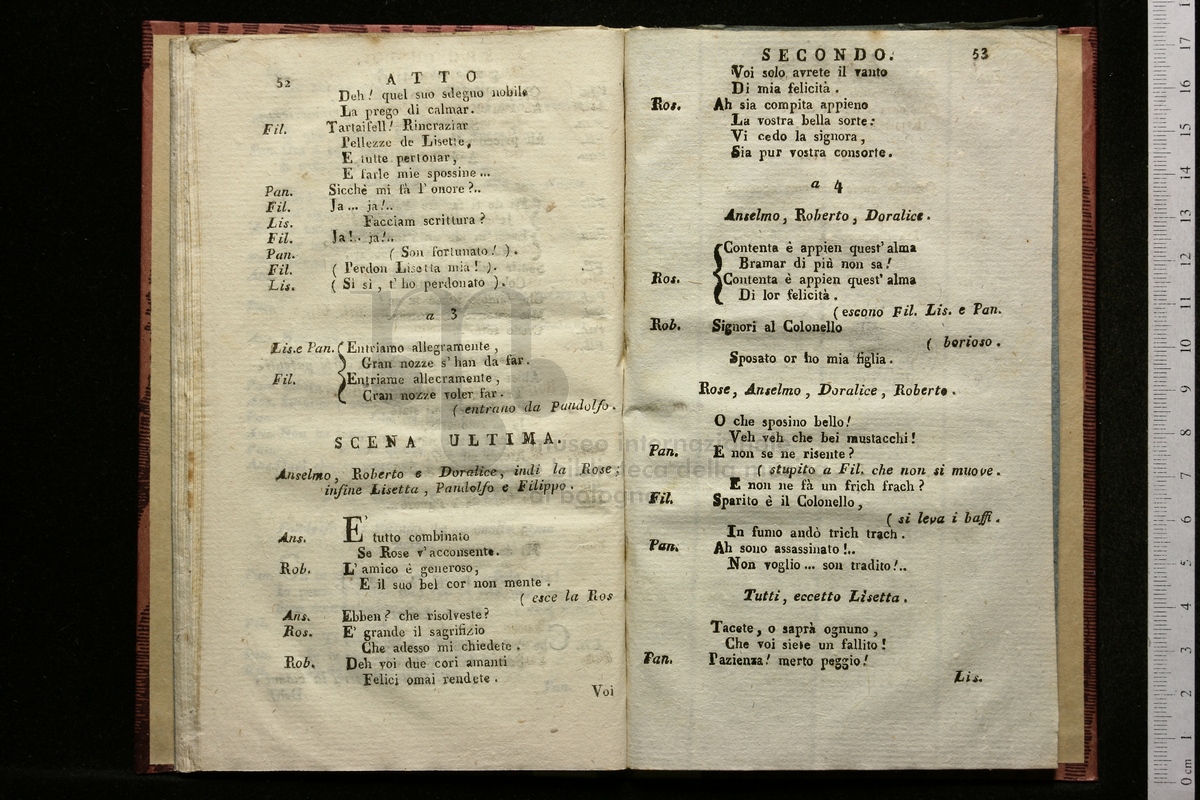 52
ATTO
Deh! quel suo sdegno nobile
La prego di calmar.
Fil. Tartaifell! Rincraziar
Pellezze de Lisette,
E tutte pertonar,
E farle mie spossine ...
Pan. Sicchè mi fà l' onore?..
Fil. Ja ... ja!..
Lis. Facciam scrittura?
Fil. Ja!.. ja!..
Pan. ( Son fortunato! ).
Fil. ( Perdon Lisetta mia! ).
Lis. ( Si sì, t' ho perdonato ).
a 3
Lis. e Pan. Entriamo allegramente,
Gran nozze s' han da far.
Fil. Entriame allecramente,
Cran nozze voler far.
( entrano da Pandolfo.
SCENA ULTIMA.
Anselmo, Roberto e Doralice, indi la Rose;
infine Lisetta, Pandolfo e Filippo.
Ans. E' tutto combinato
Se Rose v' acconsente.
Rob. L' amico è generoso,
E il suo bel cor non mente.
( esce la Ros
Ans. Ebben? che risolveste?
Ros. E' grande il sagrifizio
Che adesso mi chiedete.
Rob. Deh voi due cori amanti
Felici omai rendete.
Voi
SECONDO.
53
Voi solo avrete il vanto
Di mia felicità.
Ros. Ah sia compita appieno
La vostra bella sorte:
Vi cedo la signora,
Sia pur vostra consorte.
a 4
Anselmo, Roberto, Doralice.
Contenta è appien quest' alma
Bramar di più non sa!
Ros. Contenta è appien quest' alma
Di lor felicità.
( escono Fil. Lis. e Pan.
Rob. Signori al Colonello
( borioso.
Sposato or ho mia figlia.
Rose, Anselmo, Doralice, Roberto.
O che sposino bello!
Veh veh che bei mustacchi!
Pan. E non se ne risente?
( stupito a Fil. che non si muove.
E non ne fà un frich frach?
Fil. Sparito è il Colonello,
( si leva i baffi.
In fumo andò trich trach.
Pan. Ah sono assassinato!..
Non voglio ... son tradito!..
Tutti, eccetto Lisetta.
Tacete, o saprà ognuno,
Che voi siete un fallito!
Pan. Pazienza! merto peggio!
Lis.